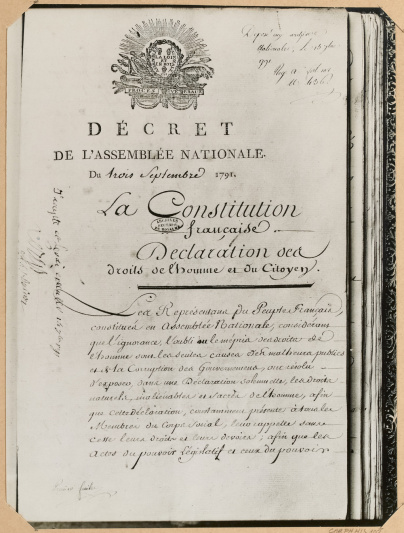 DÉCRET
DE L'ASSEMBLÉE NATIONALE.
Du trois Septembre 1791.
La Constitution
française
Declaration des
droits de l'homme et du Citoyen.
Les Représentans du Peuple Français,
constitués en Assemblée Nationale, considérant
que l'ignorance, l'oubli ou le mépris des droits de
l'homme sont les seules causes des malheurs publics
et de la Corruption des Gouvernements, ont résolu
d'exposer, dans une Déclaration solennelle, les droits
naturels, inaliénables et sacrés de l'homme, afin
que cette déclaration, constamment présente à tous les
Membres du Corps Social, leur rappelle sans
cesse leurs droits et leurs devoirs; afin que les
Actes du pouvoir Législatif et ceux du pouvoir